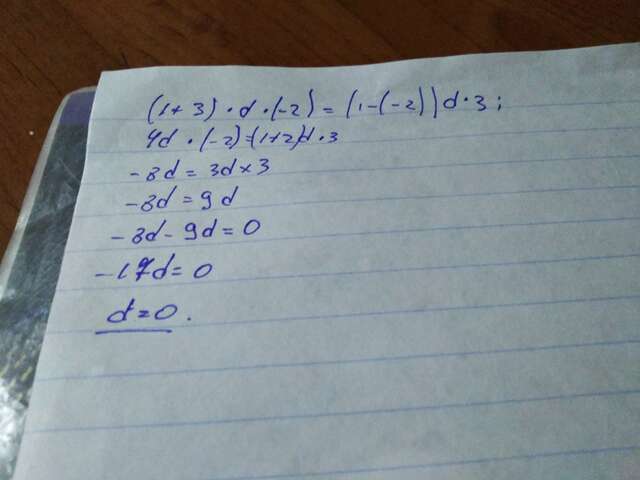 (1+3)·d·(-2)=(1-(-2))d·3;
4d·(-2)=(1+2)d·3
-8d=3d×3
-8d=9d
-8d-9d=0
-17d=0
d=0.